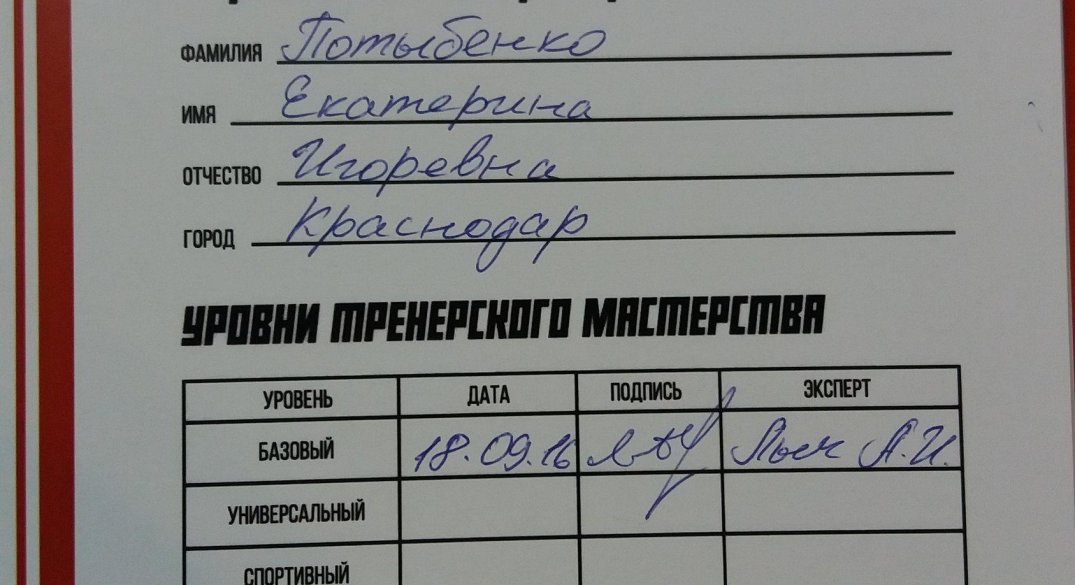 ФАМИЛИЯ Потыбенко
ИМЯ Екатерина
ОТЧЕСТВО Игоревна
ГОРОД Краснодар
УРОВНИ ТРЕНЕРСКОГО МАСТЕРСТВА
УРОВЕНЬ ДАТА ПОДПИСЬ ЭКСПЕРТ
БАЗОВЫЙ 18.09.16 А.И.
УНИВЕРСАЛЬНЫЙ
СПОРТИВНЫЙ